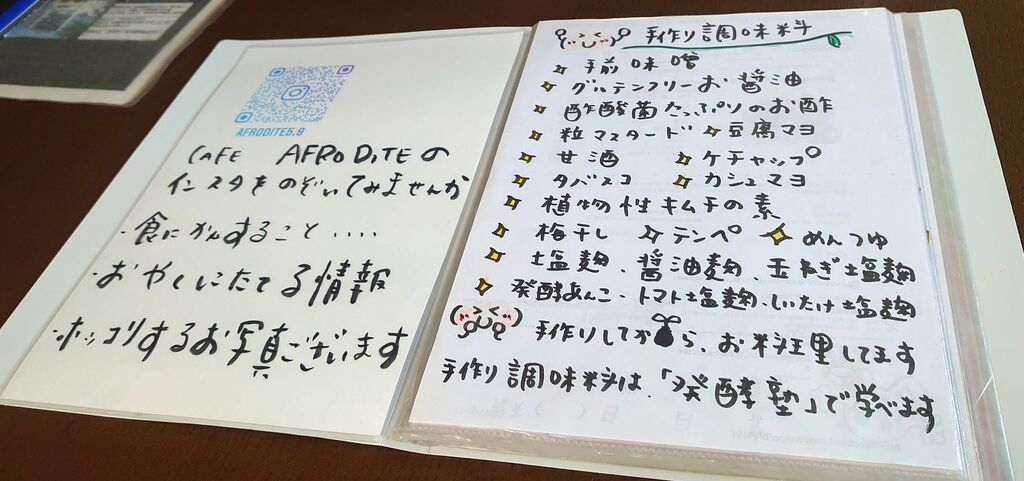 AFRODITE5.9
CAFE AFRODITEの
インスタをのぞいてみませんか
・食にかんすること・・・・
・おやくにたてる情報
・ホッコリするお写真ございます
手作り調味料
手前味噌
グルテンフリーお醤油
酢酸菌たっぷりのお酢
粒マスタード 豆腐マヨ
甘酒 ケチャップ
タバスコ カシュマヨ
植物性キムチの素
梅干し テンペ めんつゆ
塩麹、醤油麹、玉ねぎ塩麹
発酵あんこ・トマト塩麹・しいたけ塩麹
手作りしてから、お料理してます
手作り調味料は、「発酵塾」で学べます